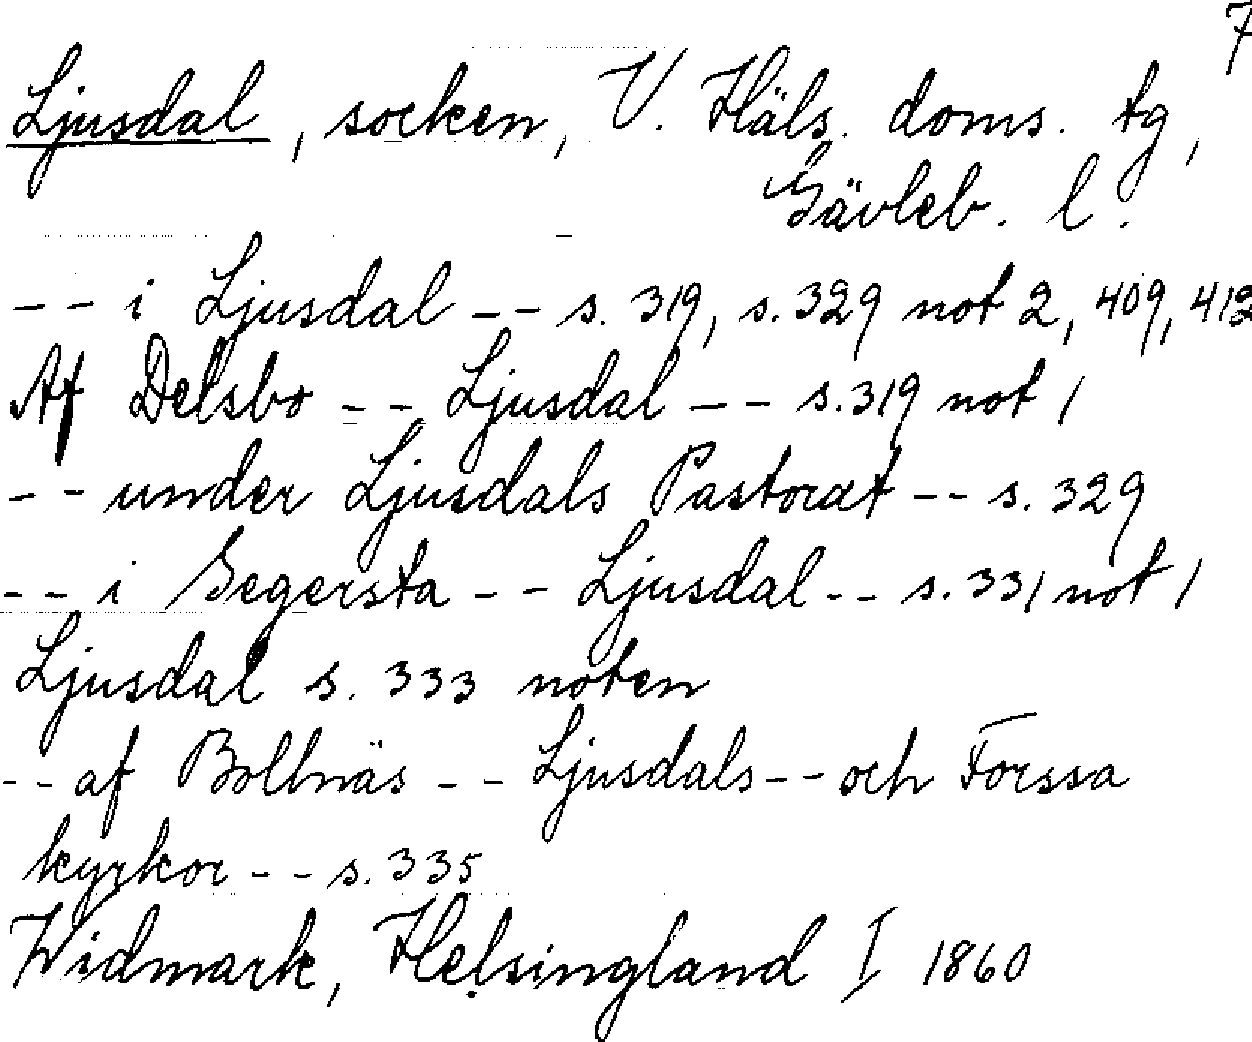 7
Ljusdal, socken, V. Häls. doms. tg,
Gävleb. l.
-- i Ljusdal -- s. 319, s. 329 not 2, 409, 412
Af Delsbo -- Ljusdal -- s. 319 not 1
-- under Ljusdals Pastorat -- s. 329
-- i Segersta -- Ljusdal -- s. 331 not 1
Ljusdal s. 333 noten
-- af Bollnäs -- Ljusdals -- och Forssa
kyrkor -- s. 335
Widmark, Helsingland I 1860